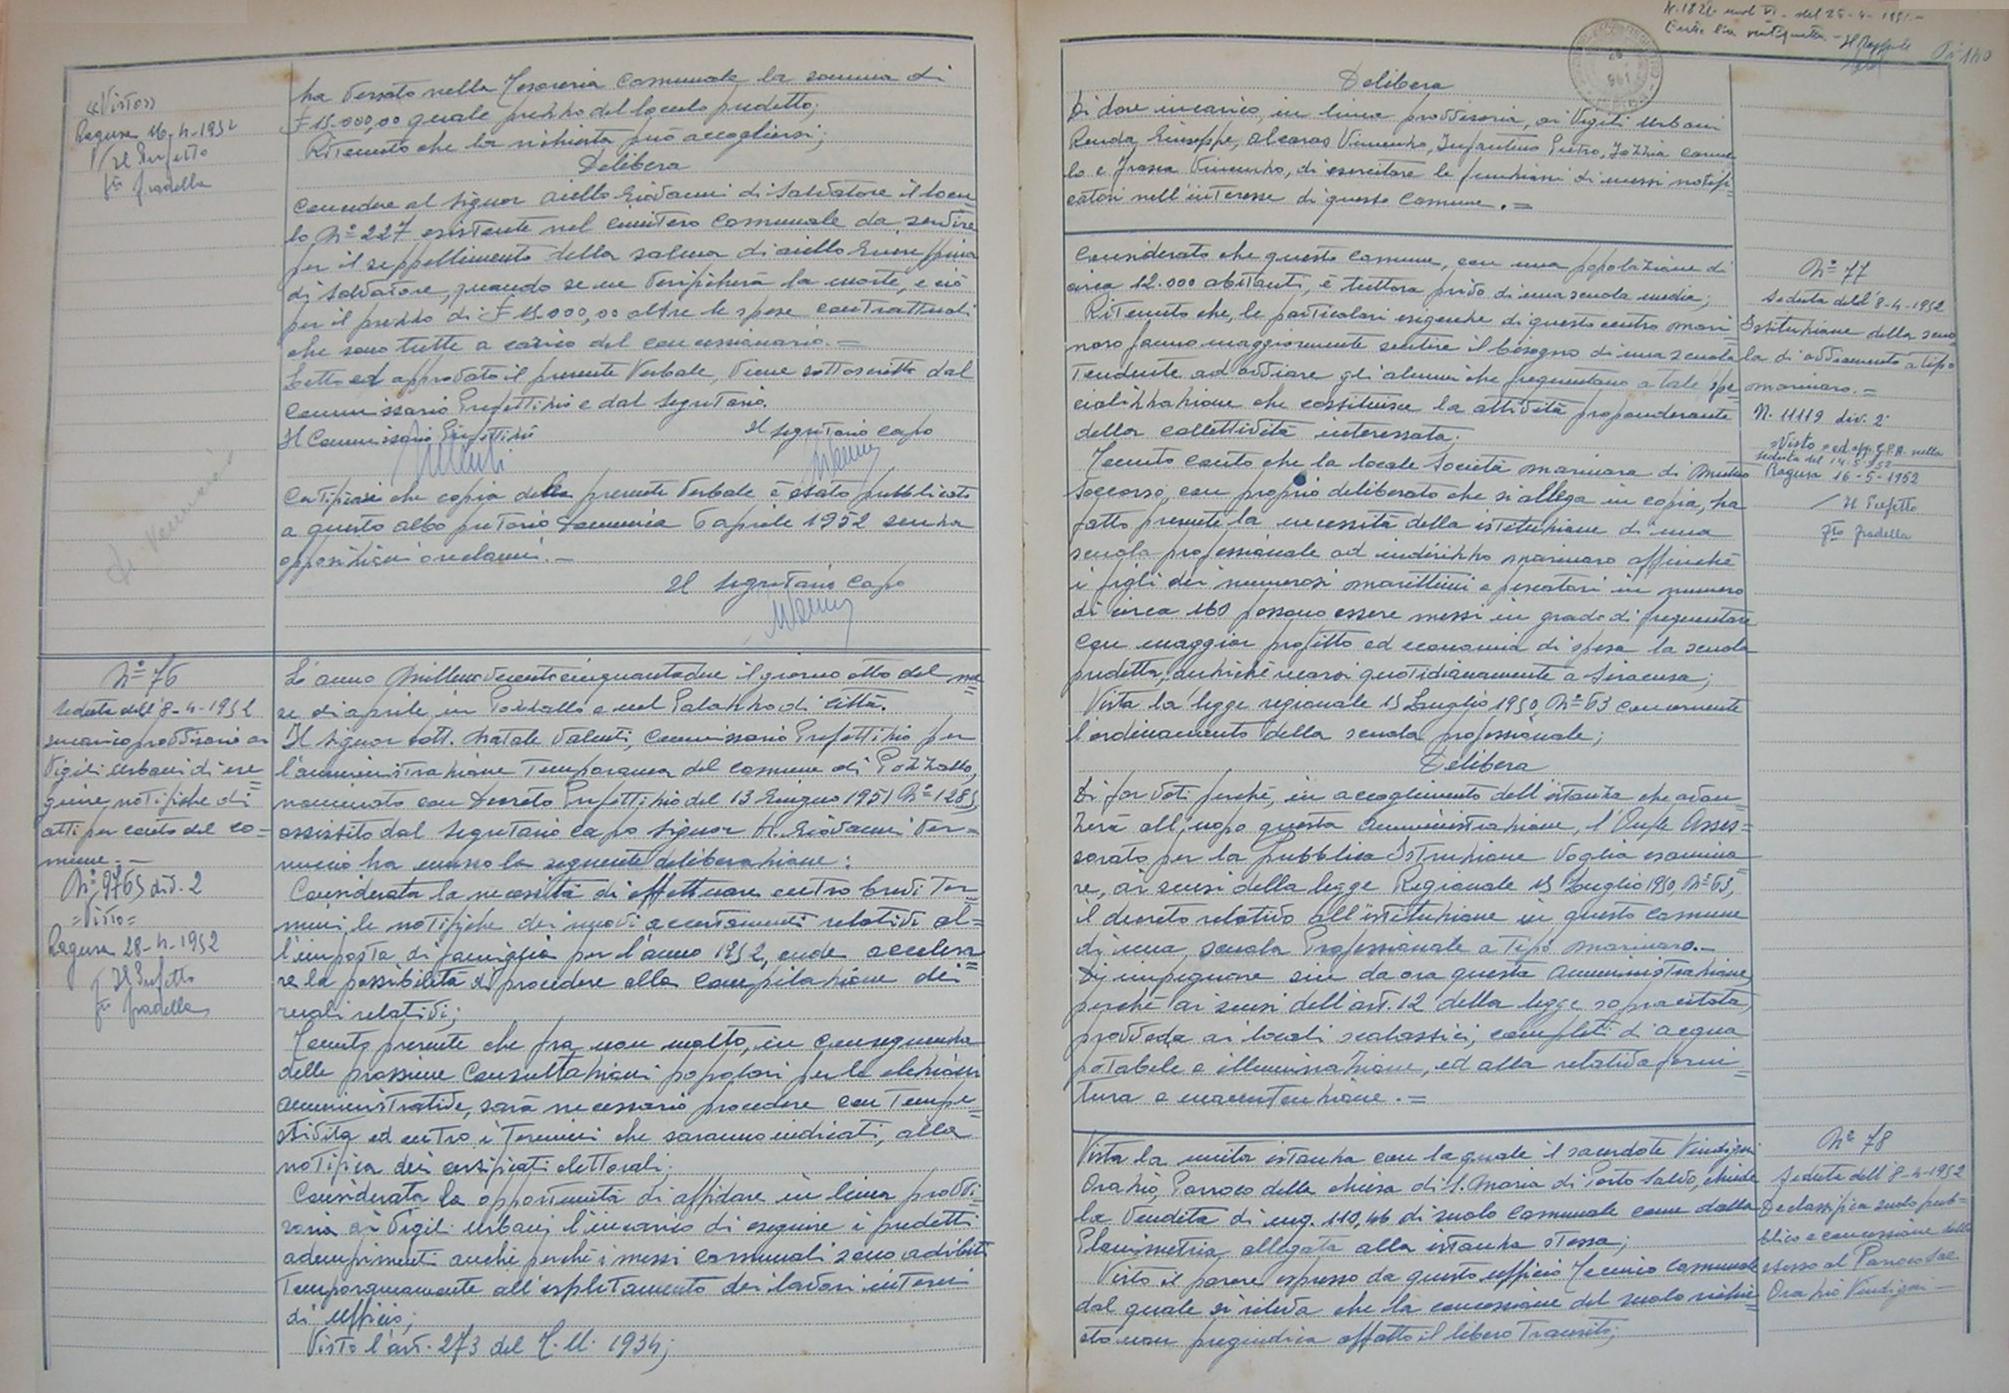 «Visto»
Ragusa 16-4-1952
Il Prefetto
fto Gradella
ha versato nella Tesoreria Comunale la somma di
£ 15.000,00 quale prezzo del loculo predetto;
Ritenuto che la richiesta può accogliersi;
Delibera
Concedere al Signor Aiello Giovanni di Salvatore il locu=
lo N° 227 esistente nel cimitero Comunale da servire
per il seppellimento della salma di Aiello
di Salvatore, quando se ne verificherà la morte, e ciò
per il prezzo di £ 15.000,00 oltre le spese contrattuali
che sono tutte a carico del concessionario. =
Letto ed approvato il presente Verbale, viene sottoscritto dal
Commissario Prefettizio e dal Segretario.
Il Commissario Prefettizio
Il Segretario Capo
Certificasi che copia della presente Verbale è stato pubblicato
a questo albo pretorio Domenica 6 aprile 1952 senza
opposizioni o reclami. -
Il Segretario Capo
N° 76
Seduta dell'8-4-1952
Incarico provvisorio ai
Vigili Urbani di ese=
guire notifiche di
atti per conto del Co=
mune. -
N° 9765 div. 2
=Visto=
Ragusa 28-4-1952
Il Prefetto
fto Gradella
L'anno Millenovecentocinquantadue il giorno otto del me=
se di aprile in Pozzallo e nel Palazzo di Città.
Il Signor Dott. Natale Valenti, Commissario Prefettizio per
l'amministrazione Temporanea del Comune di Pozzallo,
nominato con Decreto Prefettizio del 13 Giugno 1951 N° 1285,
assistito dal Segretario Capo Signor Giovanni Ver=
nuccio ha emesso la seguente deliberazione:
Considerata la necessità di effettuare entro brevi ter=
mini, le notifiche dei nuovi accertamenti relativi al=
l'imposta di famiglia per l'anno 1952, onde accelera=
re la possibilità di procedere alla compilazione dei
ruoli relativi;
Tenuto presente che fra non molto, in conseguenza
delle prossime Consultazioni popolari per le elezioni
amministrative, sarà necessario procedere con Tempe=
stività ed entro i Termini che saranno indicati, alla
notifica dei certificati elettorali;
Considerata la opportunità di affidare in linea provvi=
soria ai Vigili Urbani l'incarico di eseguire i predetti
adempimenti anche perchè i messi comunali sono adibiti
Temporaneamente all'espletamento dei lavori interni
di Ufficio;
Visto l'art. 273 del T.U. 1934;
Delibera
Di dare incarico, in linea provvisoria, ai Vigili Urbani
Renda Giuseppe, Alcaras Vincenzo, Infantino Pietro, Iozzia Carme
lo e Frasca Vincenzo, di esercitare le funzioni di messi notifi=
catori nell'interesse di questo Comune. =
N° 77
Seduta dell'8-4-1952
Istituzione della scuo
la di avviamento a tipo
marinaro. =
N. 11119 div. 2
"Visto" ed app. G.P.A. nella
seduta del 14.5.952
Ragusa 16-5-1952
Il Prefetto
fto Gradella
Considerato che questo Comune, con una popolazione di
circa 12.000 abitanti, è tuttora privo di una scuola media;
Ritenuto che, le particolari esigenze di questo centro mari=
naro fanno maggiormente sentire il bisogno di una scuola
Tendente ad avviare gli alunni che frequentano a tale spe=
cializzazione che costituisce la attività preponderante
della collettività interessata;
Tenuto conto che la locale Società marinara di Mutuo
Soccorso, con proprio deliberato che si allega in copia, ha
fatto presente la necessità della istituzione di una
scuola professionale ad indirizzo marinaro affinchè
i figli dei numerosi marittimi e pescatori in numero
di circa 160 possano essere messi in grado di frequentare
con maggior profitto ed economia di spesa la scuola
predetta, anzichè recarsi quotidianamente a Siracusa;
Vista la legge regionale 15 Luglio 1950, N° 63 concernente
l'ordinamento della scuola professionale;
Delibera
Di far voti perchè, in accoglimento dell'istanza che avan=
zerà all'uopo questa Amministrazione, l'On/le Asses=
sorato per la Pubblica Istruzione voglia esamina=
re, ai sensi della legge Regionale 15 Luglio 1950, N° 63,
il decreto relativo all'istituzione in questo Comune
di una scuola Professionale a tipo marinaro. -
Di impegnare sin da ora questa Amministrazione
perchè ai sensi dell'art. 12 della legge sopracitata,
provveda ai locali scolastici, completi di acqua
potabile e illuminazione, ed alla relativa forni=
tura e manutenzione. =
N° 78
Seduta dell'8-4-1952
Declassifica suolo pub=
blico e concessione dello
stesso al Parroco Sac.
Orazio Vindigni -
Vista la unita istanza con la quale il sacerdote Vindigni
Orazio, Parroco della chiesa di S. Maria di Porto Salvo, chiede
la vendita di mq. 110,46 di suolo comunale come dalla
Planimetria allegata alla istanza stessa;
Visto il parere espresso da questo ufficio Tecnico Comunale
dal quale si rileva che la concessione del suolo richie=
sto non pregiudica affatto il libero Transito;